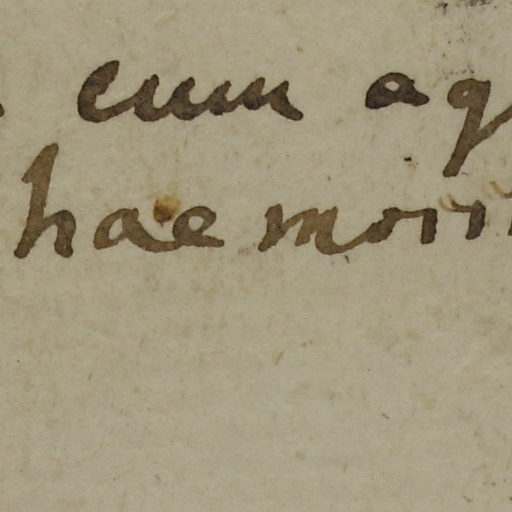 cum aq
haemorr